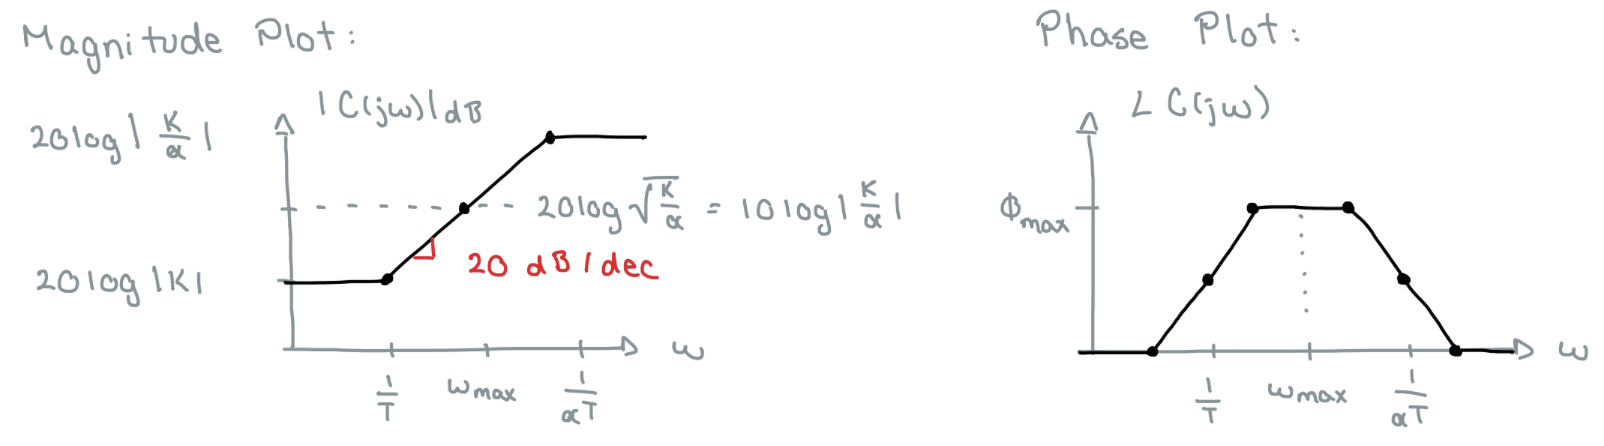 Magnitude Plot:
|C(jω)|dB
20log|K/α|
20log√K/α = 10log|K/α|
20 dB/dec
20log|K|
ω
1/T ωmax 1/αT
Phase Plot:
∠C(jω)
Φmax
ω
1/T ωmax 1/αT